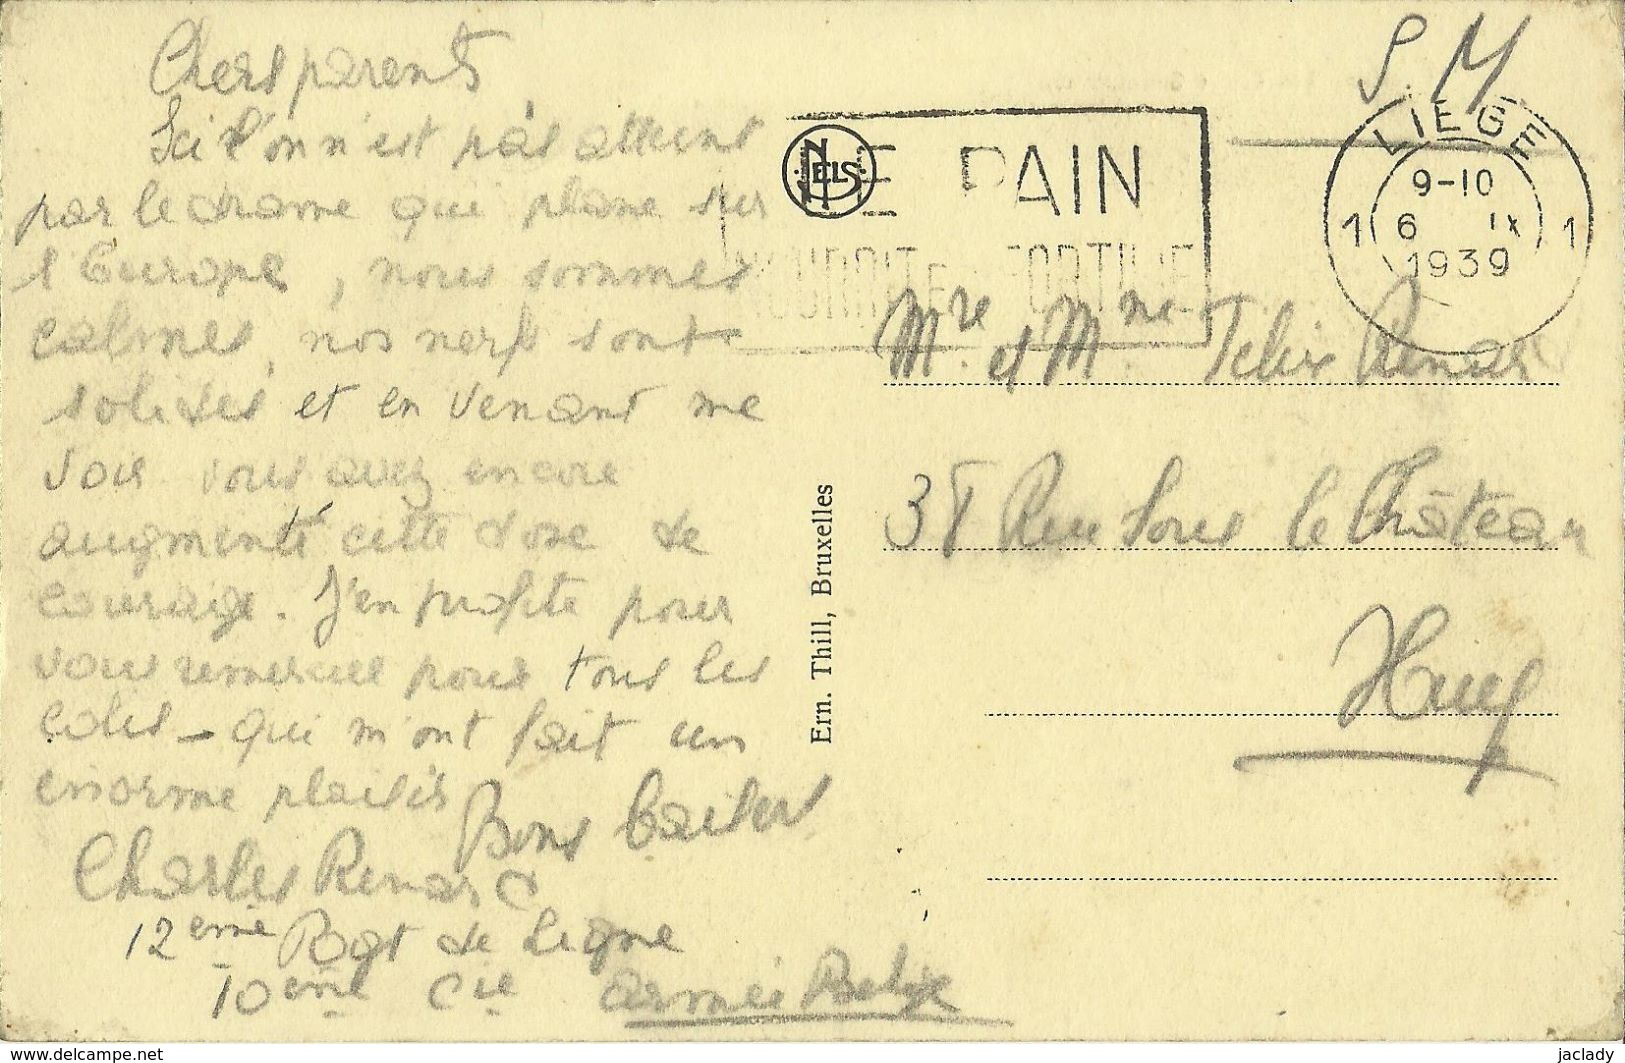 Chers parents
Ici l'on n'est pas atteint
par le drame qui plane sur
l'Europe, nous sommes
calmes, nos nerfs sont
solides et en venant me
voir vous avez encore
augmenté cette dose de
courage. J'en profite pour
vous remercier pour tous les
colis - qui m'ont fait un
énorme plaisir
Bons baisers
Charles Renard
12eme Rgt de Ligne
10eme Cie armée Belge
Ern. Thill, Bruxelles
NELS
LE PAIN
NOURRIT FORTIFIE
S.M
LIEGE
9-10
1 6 IX 1
1939
Mre et Mme Felix Renard
38 Rue Sous le Château
Huy
www.delcampe.net
jaclady